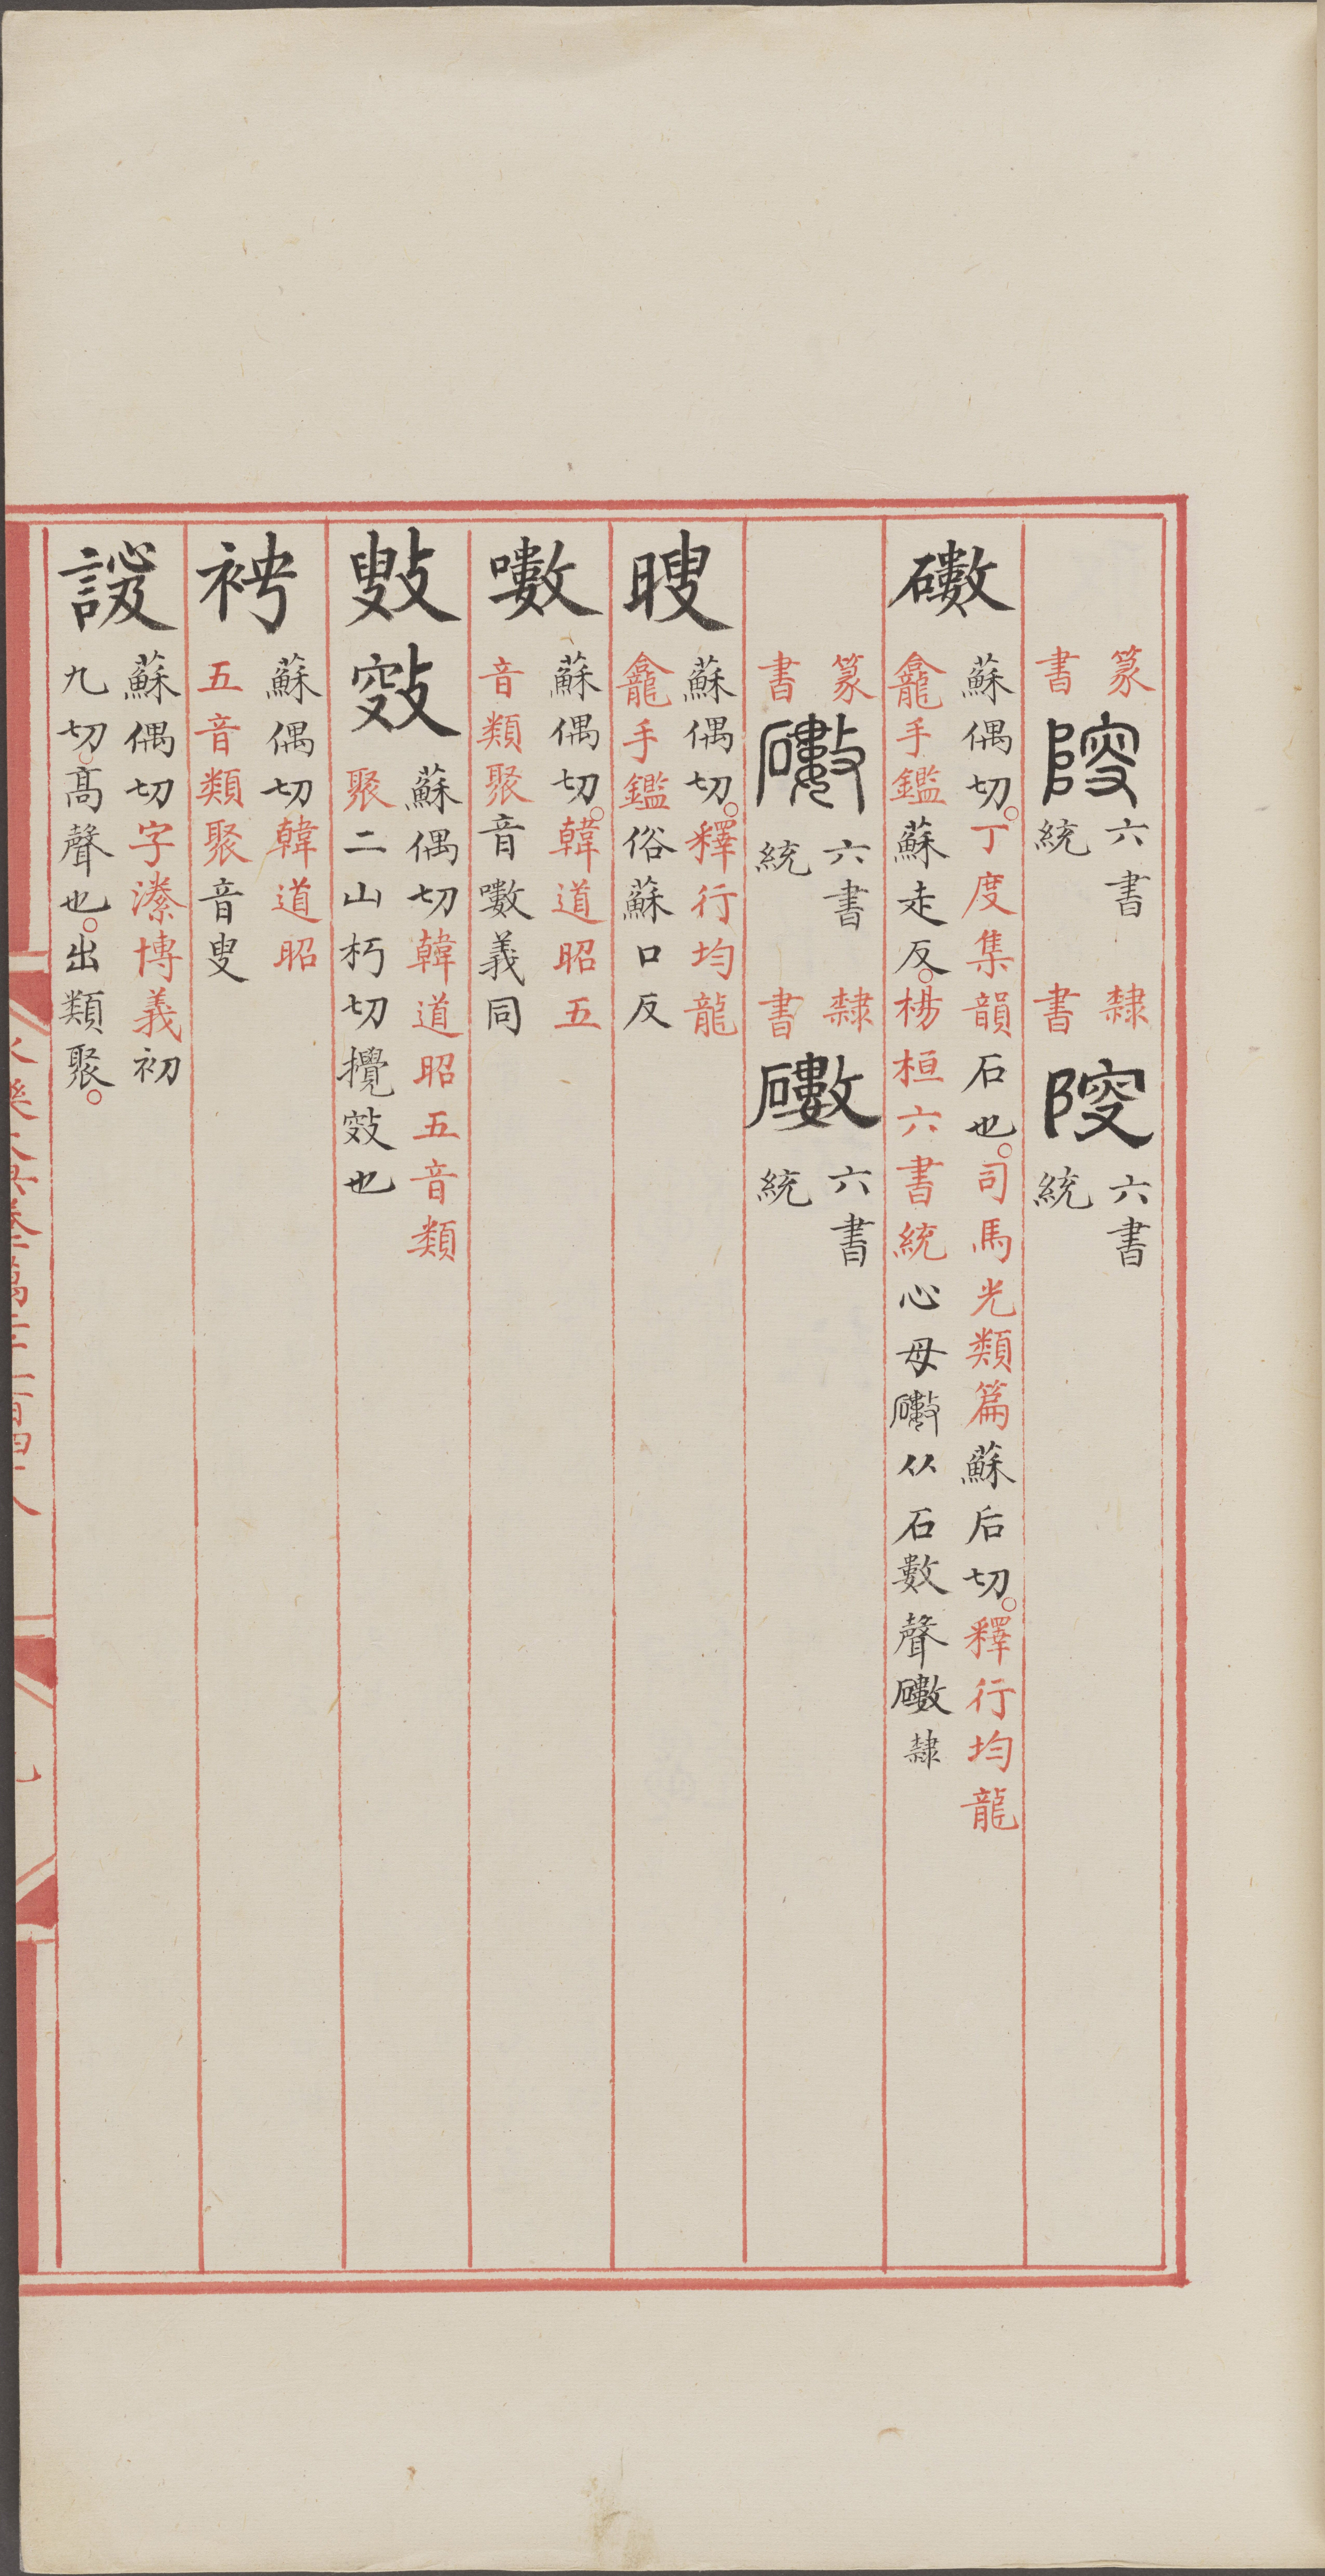 篆書𨹐六書統 隸書𨹐六書統
䃤 蘇偶切丁度集韻石也司馬光類篇蘇后切釋行均龍
龕手鑑蘇走反楊桓六書統心母䃤从石數聲䃤隸
篆書䃤六書統 隸書䃤六書統
䁬 蘇偶切釋行均龍
龕手鑑俗蘇口反
㗙 蘇偶切韓道昭五
音類聚音㗙義同
蘇偶切韓道昭五音類
聚二山朽切攪也
蘇偶切韓道昭
五音類聚音叟
蘇偶切字潫博義初
九切高聲也出類聚